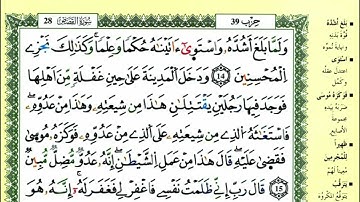 سُورَةُ القَصَصِ 28
حزب 39
وَلَمَّا بَلَغَ أَشُدَّهُۥ وَاسْتَوَىٰٓ ءَاتَيْنَٰهُ حُكْمًا وَعِلْمًا وَكَذَٰلِكَ نَجْزِے
اِ۬لْمُحْسِنِينَ 14 وَدَخَلَ اَ۬لْمَدِينَةَ عَلَىٰ حِينِ غَفْلَةٍ مِّنَ اَهْلِهَا
فَوَجَدَ فِيهَا رَجُلَيْنِ يَقْتَتِلَٰنِ هَٰذَا مِن شِيعَتِهِۦ وَهَٰذَا مِنْ عَدُوِّهِۦ
فَاسْتَغَٰثَهُ اُ۬لذِے مِن شِيعَتِهِۦ عَلَى اَ۬لذِے مِنْ عَدُوِّهِۦ فَوَكَزَهُۥ مُوسَىٰ
فَقَضَىٰ عَلَيْهِ قَالَ هَٰذَا مِنْ عَمَلِ اِ۬لشَّيْطَٰنِ إِنَّهُۥ عَدُوٌّ مُّضِلٌّ مُّبِينٌ 15
قَالَ رَبِّ إِنِّے ظَلَمْتُ نَفْسِے فَاغْفِرْ لِے فَغَفَرَ لَهُۥٓ إِنَّهُۥ هُوَ
بَلَغَ أَشُدَّهُ
قوة بدنه
اسْتَوَى
اعتدل عقله
فَوَكَزَهُ مُوسَى
ضربه بيده
ظَهِيراً
لِّلْمُجْرِمِينَ
معيناً لهم
يَتَرَقَّبُ